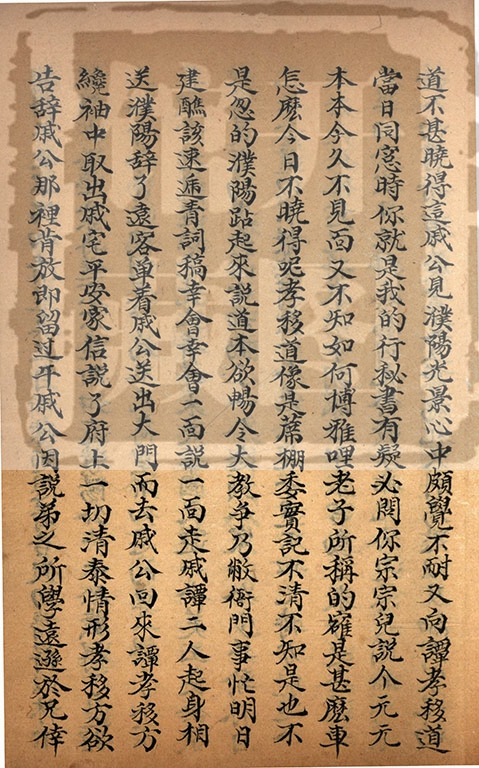 道不甚曉得這戚公見濮陽光景心中頗覺不耐又向譚孝移道
當日同窓時你就是我的行秘書有疑必問你宗宗兒說个元元
本本今久不見面又不知如何博雅哩老子所稱的確是甚麽車
怎麽今日不曉得呢孝移道像是蓆棚委實記不清不知是也不
是忽的濮陽跕起來説道本欲暢令大教爭乃敝衙門事忙明日
建醮該速遞青詞稿幸會幸會一面説一面走戚譚二人起身相
送濮陽辞了遠客单着戚公送出大門而去戚公回來譚孝移方
纔袖中取出戚宅平安家信説了府上一切清泰情形孝移方欲
告辞戚公那裡肯放即留过午戚公因説弟之所學遠遜於兄倖